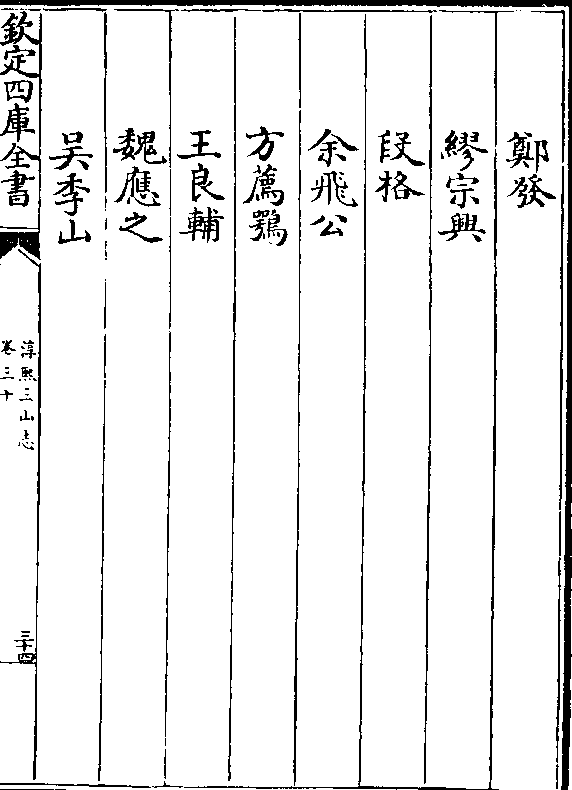 鄭發
繆宗興
段格
余飛公
方薦鶚
王良輔
魏應之
吴季山
欽定四庫全書
淳熙三山志
卷三十
三十四